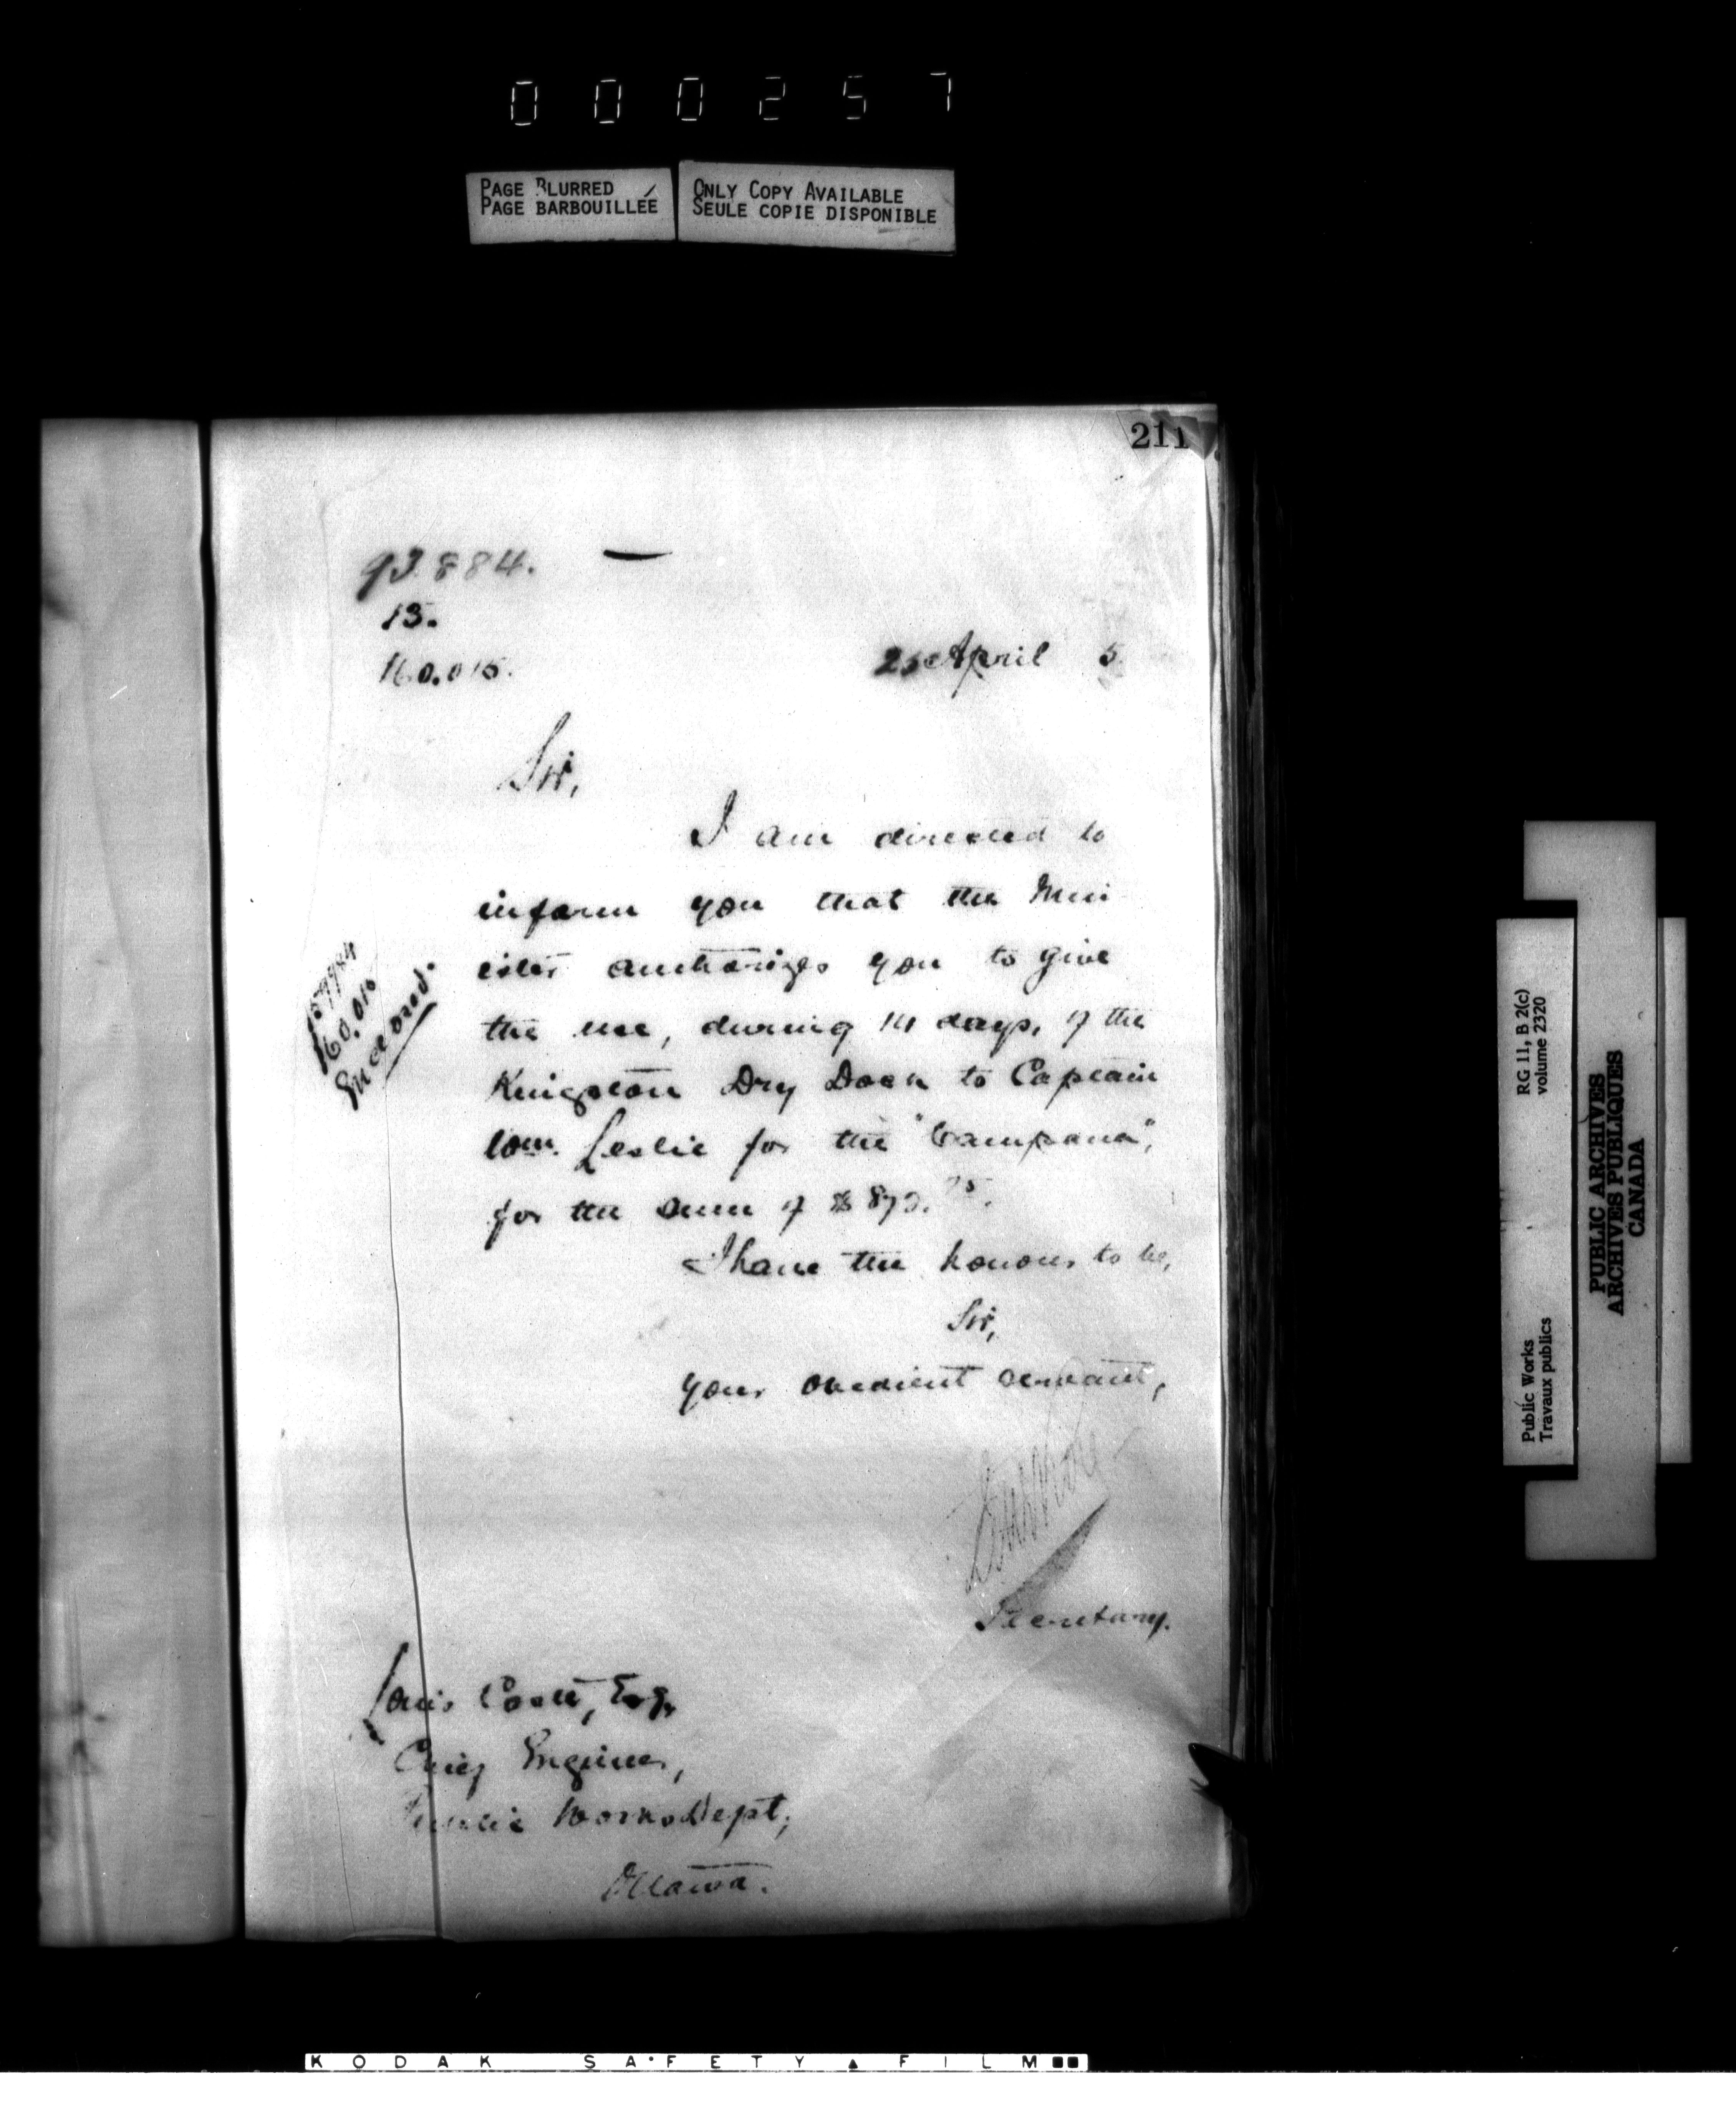 000257
PAGE BLURRED
PAGE BARBOUILLÉE
ONLY COPY AVAILABLE
SEULE COPIE DISPONIBLE
211
93.884.
13.
160.015.
April 5
Sir,
I am directed to
inform you that the Min
ister authorizes you to give
the use, during 14 days, of the
Kingston Dry Dock to Captain
Wm. Leslie for the "Campana",
for the sum of $
I have the honour to be,
Sir,
your obedient servant,
Secretary.
Louis Coste, Esq.
Chief Engineer,
Public Works Dept,
Ottawa.
160.016
Enclosed.
RG 11, B 2(c)
volume 2320
Public Works
Travaux publics
PUBLIC ARCHIVES
ARCHIVES PUBLIQUES
CANADA
KODAK SAFETY FILM